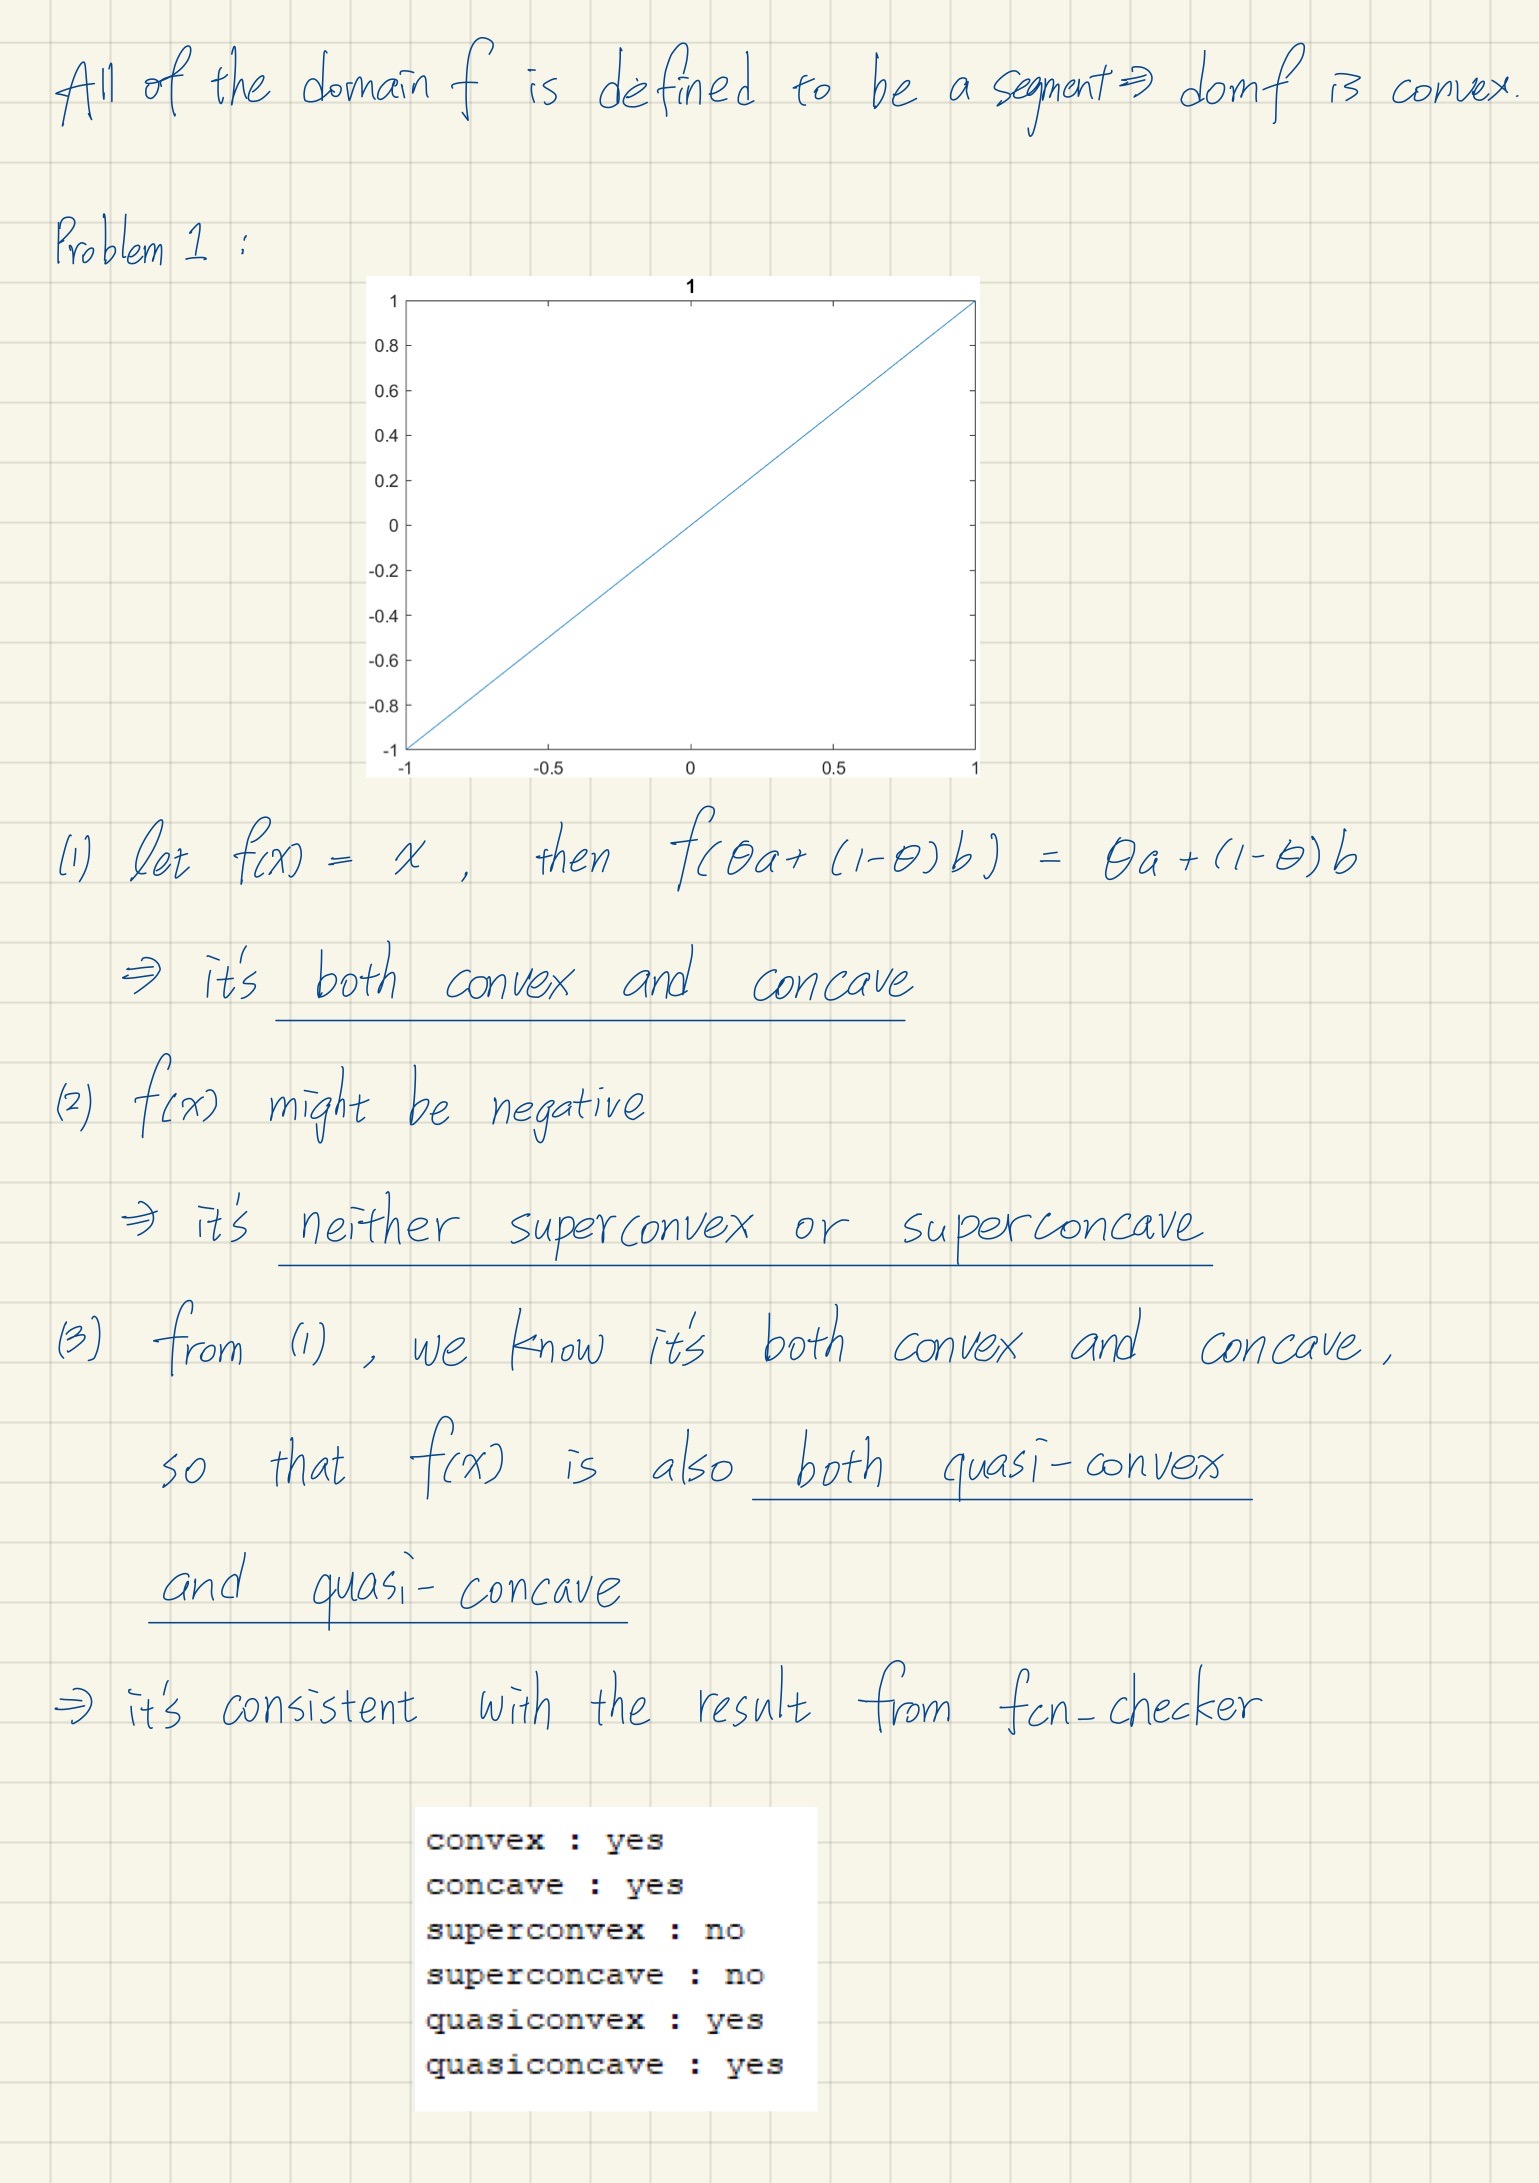 All of the domain f is defined to be a segment ⇒ domf is convex.
Problem 1 :
1
1
0.8
0.6
0.4
0.2
0
-0.2
-0.4
-0.6
-0.8
-1
-1 -0.5 0 0.5 1
(1) let f(x) = x , then f(θa + (1-θ)b) = θa + (1-θ)b
⇒ it's both convex and concave
(2) f(x) might be negative
⇒ it's neither superconvex or superconcave
(3) from (1) , we know it's both convex and concave ,
so that f(x) is also both quasi-convex
and quasi-concave
⇒ it's consistent with the result from fcn_checker
convex : yes
concave : yes
superconvex : no
superconcave : no
quasiconvex : yes
quasiconcave : yes